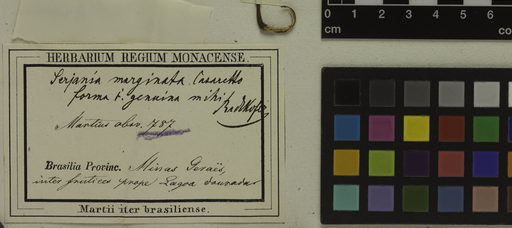 HERBARIUM REGIUM MONACENSE.
Serjania marginata Casaretto
forma 1. genuina mihi
Radlkofer
Martius obs. 787
Brasilia Provinc. Minas Geraës,
inter frutices prope Lagoa dourada
Martii iter brasiliense.
0 1 2 3 4 5 6 7
cm